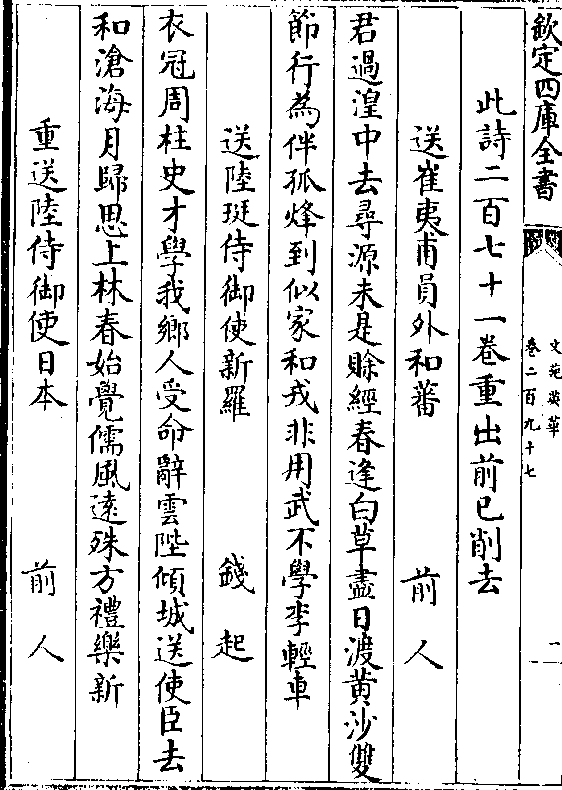 欽定四庫全書
文苑英華
卷二百九十七
二
此詩二百七十一卷重出前已削去
送崔夷甫員外和蕃 前人
君過湟中去尋源未是賖經春逢白草盡日渡黄沙雙
節行為伴孤烽到似家和戎非用武不學李輕車
送陸珽侍御使新羅 錢起
衣冠周柱史才學我鄉人受命辭雲陛傾城送使臣去
和滄海月歸思上林春始覺儒風逺殊方禮樂新
重送陸侍御使日本 前人